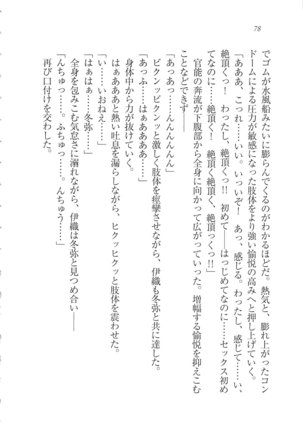 78
でゴムが水風船みたいに膨らんでくるのがわかるほどだ。熱気と、膨れ上がったコン
ドームによる圧力が敏感になった肢体をより強い愉悦の高みへと押し上げていく。
「あああ、こっれ……いい。いいぞ！　あっあっ、感じる。わったし、感じて……い、
絶頂くっ！　わったし、絶頂くっ！　初めて――はっじめてなのに――セックス初め
てなのに……絶頂く、絶頂くっ、絶頂くっ!!」
官能の奔流が下腹部から全身に向かって広がっていった。増幅する愉悦を抑えこむ
ことなどできず――
「あっあっ――んんんんんっ！
あっふ……はぁああああっ!!」
ビクンッビクンッと激しく肢体を痙攣させながら、伊織も冬弥と共に達した。
「い……いおねぇ……」
「はぁはぁ……冬弥……」
はぁあああっと熱い吐息を漏らしながら、ヒクッヒクッと肢体を震わせた。
全身を包みこむ気怠さに溺れながら、伊織は冬弥と見つめ合い――
「んちゅっ……。ふちゅっ……。んちゅう……」
再び口付けを交わした。